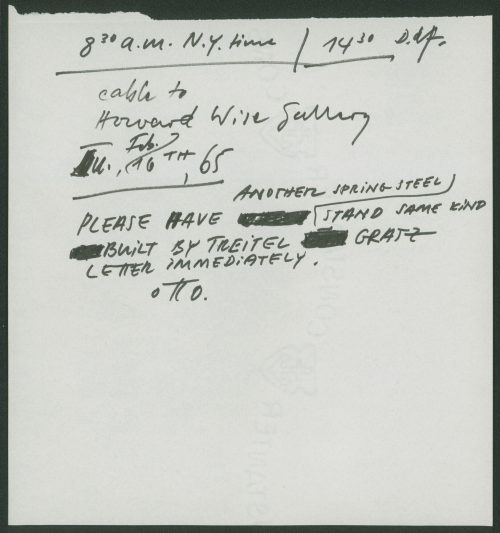 8³⁰ a.m. N.Y. time / 14³⁰ D.df.
cable to
Howard Wise Gallery
Tu., Feb. 16TH, 65
ANOTHER SPRING STEEL
PLEASE HAVE STAND SAME KIND
BUILT BY TREITEL GRATZ
LETTER IMMEDIATELY.
OTTO.